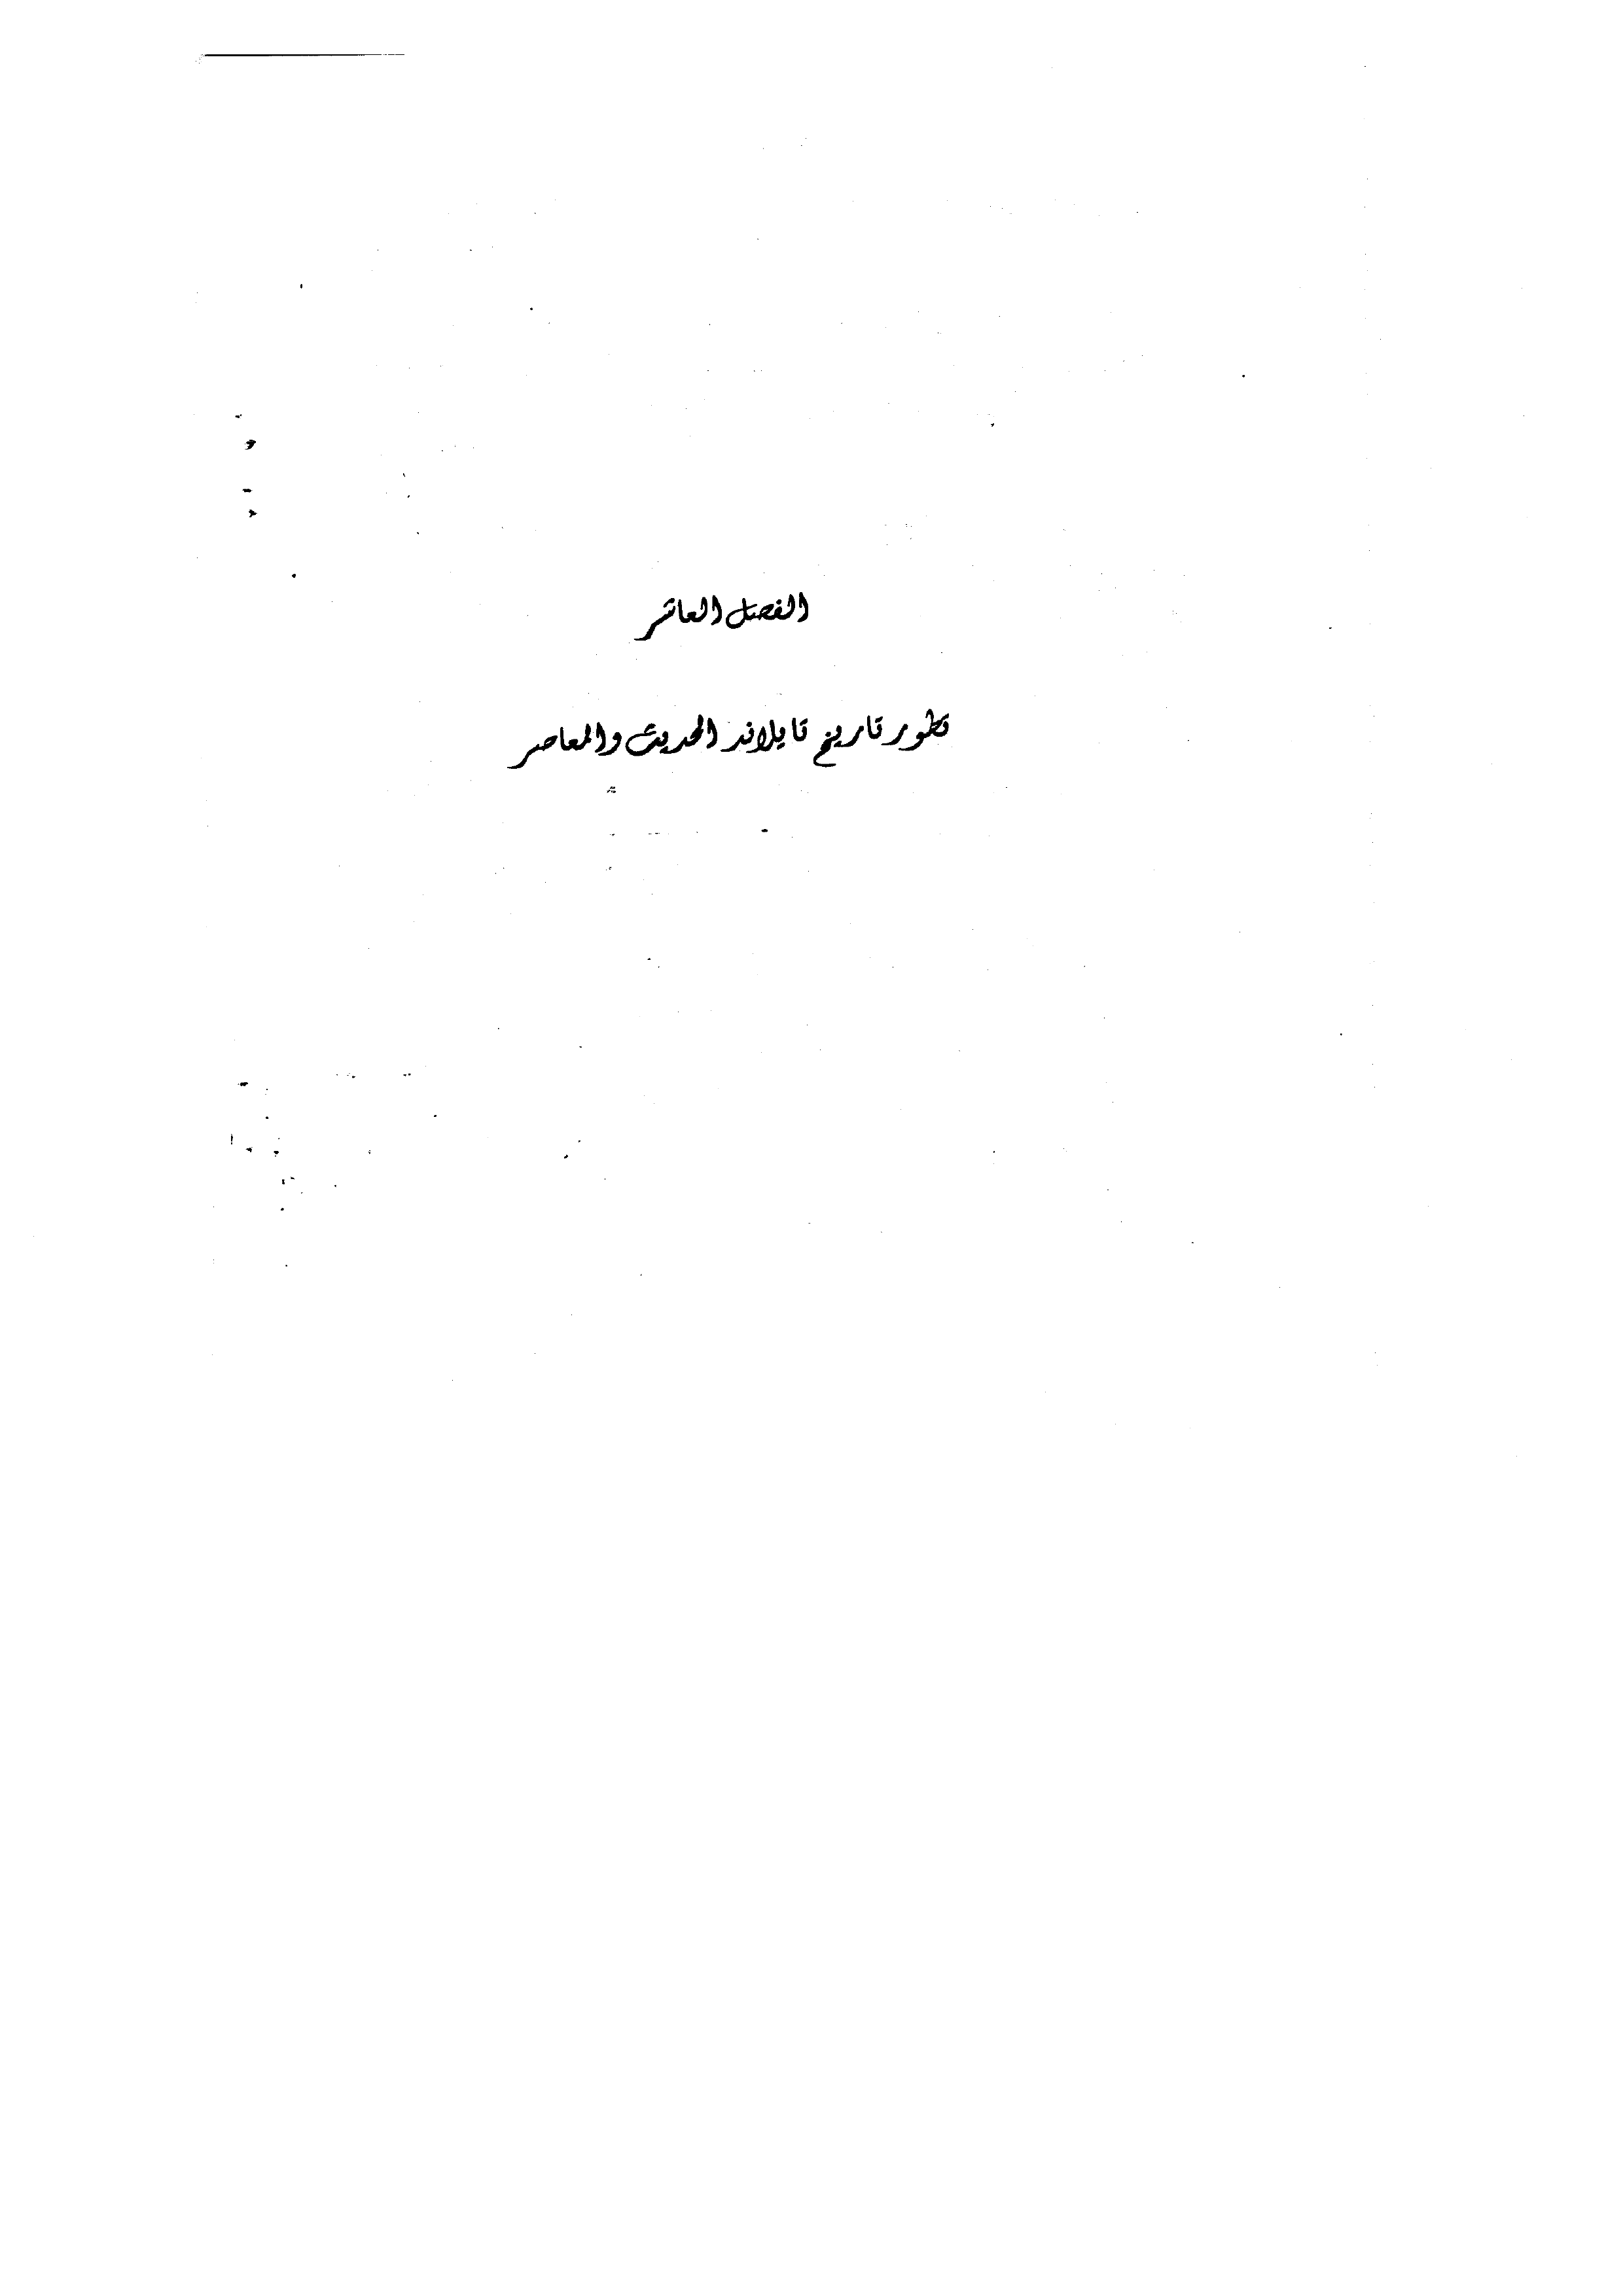 الفصل العاشر
تطور تاريخ تايلاند الحديث والمعاصر